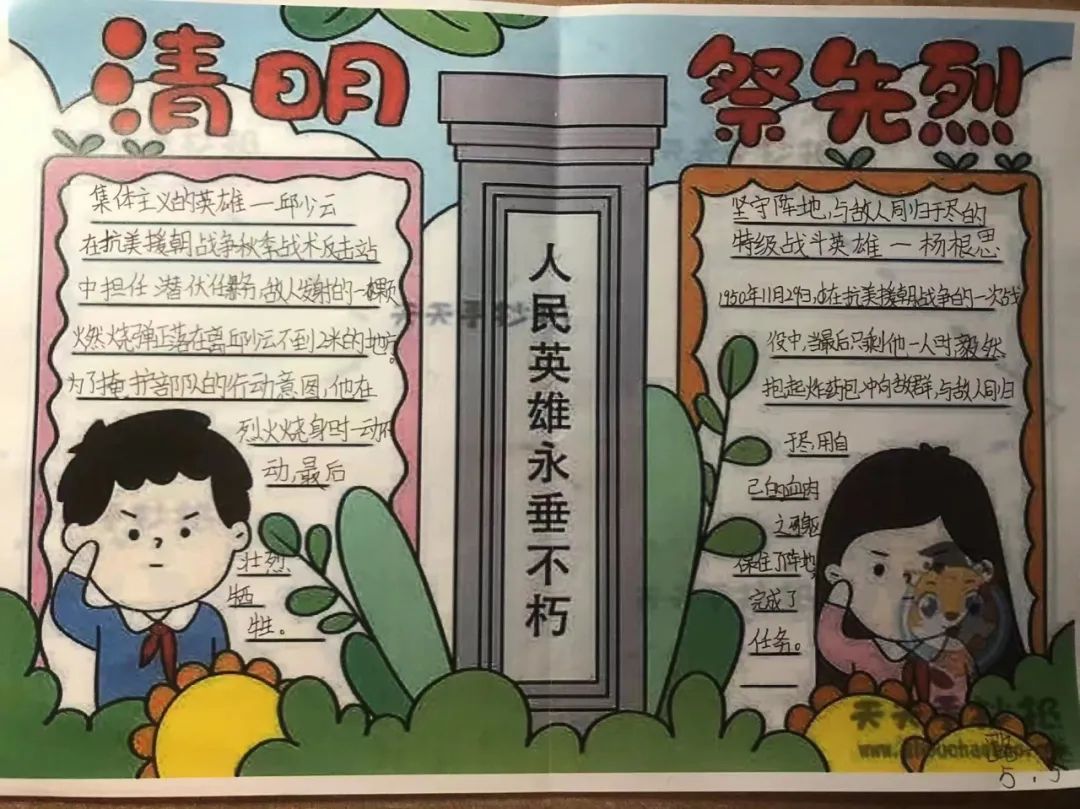 清明
祭先烈
集体主义的英雄一邱少云
在抗美援朝战争秋季战术反击站
中担任潜伏任务,敌人发射的一颗
燃烧弹正落在离邱少云不到2米的地方。
为了掩护部队的行动意图,他在
烈火烧身时一动不
动,最后
壮烈
牺
牲。
人民英雄永垂不朽
坚守阵地,与敌人同归于尽的
特级战斗英雄一杨根思
1950年11月29日,在抗美援朝战争的一次战
役中,当最后只剩他一人时毅然
抱起炸药包冲向敌群,与敌人同归
于尽,用自
己的血肉
之躯
保住了阵地
完成了
任务。
天天手抄报
5.5